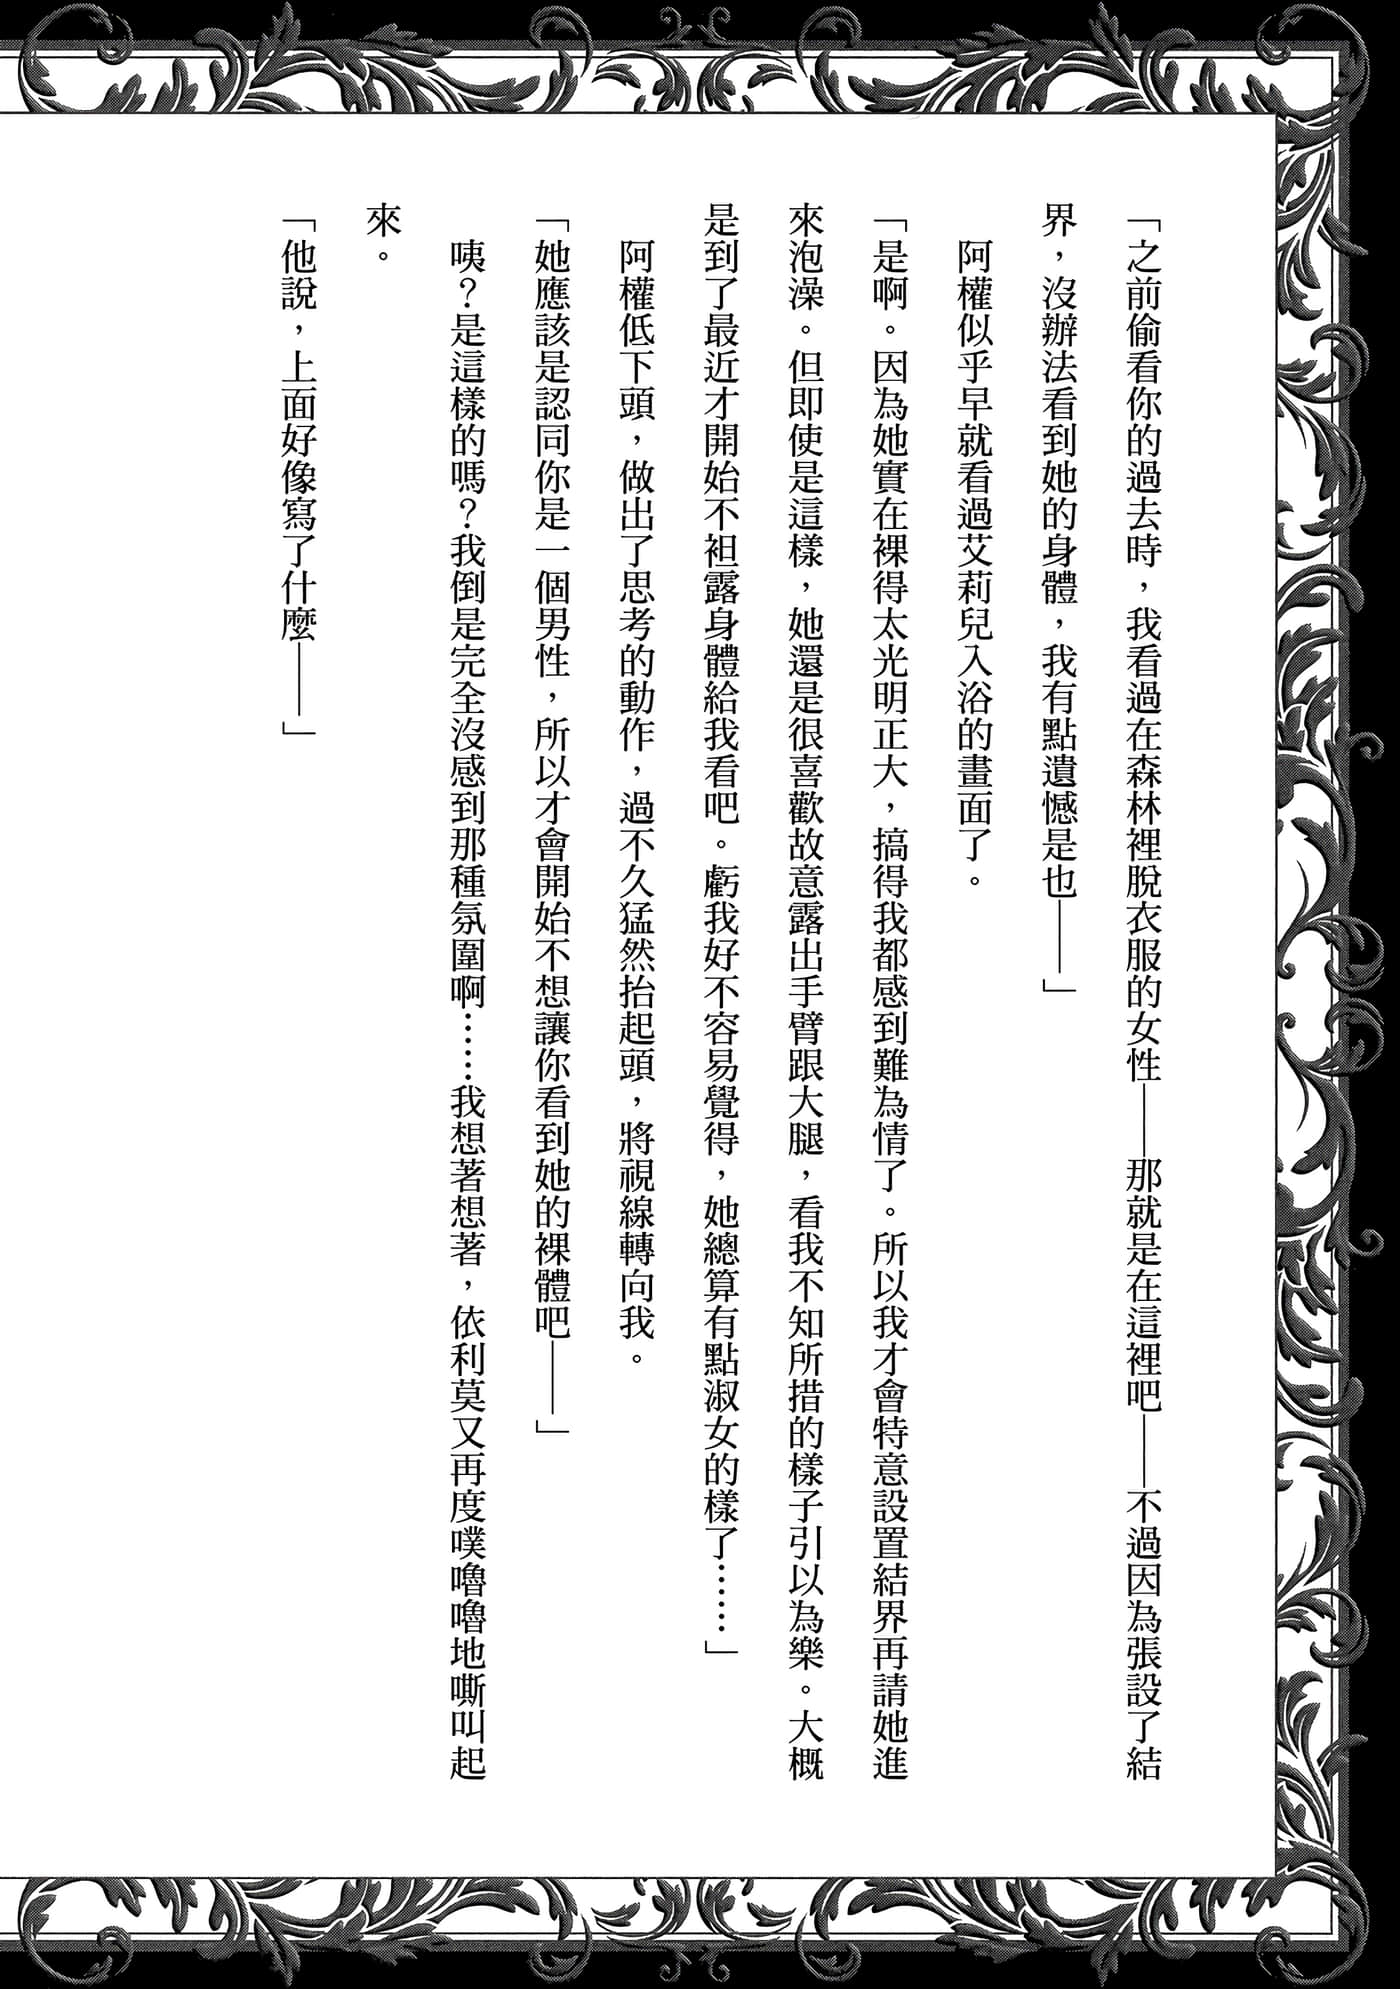 「之前偷看你的過去時，我看過在森林裡脫衣服的女性——那就是在這裡吧——不過因為張設了結
界，沒辦法看到她的身體，我有點遺憾是也——」
阿權似乎早就看過艾莉兒入浴的畫面了。
「是啊。因為她實在裸得太光明正大，搞得我都感到難為情了。所以我才會特意設置結界再請她進
來泡澡。但即使是這樣，她還是很喜歡故意露出手臂跟大腿，看我不知所措的樣子引以為樂。大概
是到了最近才開始不袒露身體給我看吧。虧我好不容易覺得，她總算有點淑女的樣了……」
阿權低下頭，做出了思考的動作，過不久猛然抬起頭，將視線轉向我。
「她應該是認同你是一個男性，所以才會開始不想讓你看到她的裸體吧——」
咦？是這樣的嗎？我倒是完全沒感到那種氛圍啊……我想著想著，依利莫又再度噗嚕嚕地嘶叫起
來。
「他說，上面好像寫了什麼——」